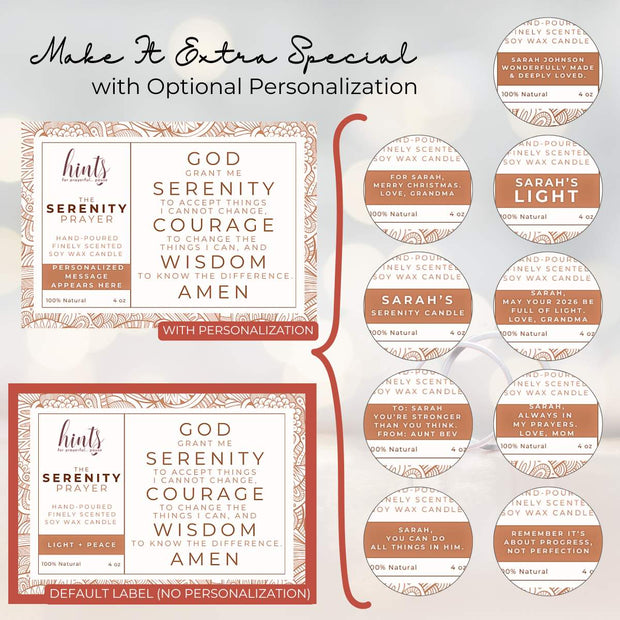 Make It Extra Special
with Optional Personalization
hints
for prayerful. pause
THE
SERENITY
PRAYER
HAND-POURED
FINELY SCENTED
SOY WAX CANDLE
PERSONALIZED
MESSAGE
APPEARS HERE
100% Natural 4 oz
GOD
GRANT ME
SERENITY
TO ACCEPT THINGS
I CANNOT CHANGE,
COURAGE
TO CHANGE THE
THINGS I CAN, AND
WISDOM
TO KNOW THE DIFFERENCE.
AMEN
WITH PERSONALIZATION
hints
for prayerful. pause
THE
SERENITY
PRAYER
HAND-POURED
FINELY SCENTED
SOY WAX CANDLE
LIGHT + PEACE
100% Natural 4 oz
GOD
GRANT ME
SERENITY
TO ACCEPT THINGS
I CANNOT CHANGE,
COURAGE
TO CHANGE THE
THINGS I CAN, AND
WISDOM
TO KNOW THE DIFFERENCE.
AMEN
DEFAULT LABEL (NO PERSONALIZATION)
ND-POURED
FINELY SCENTED
SOY WAX CANDLE
SARAH JOHNSON
WONDERFULLY MADE
& DEEPLY LOVED.
100% Natural 4 oz
ND-POUR
FINELY SCENTED
SOY WAX CANDLE
FOR SARAH,
MERRY CHRISTMAS.
LOVE, GRANDMA
100% Natural 4 oz
ND-POURED
FINELY SCENTED
SOY WAX CANDLE
SARAH'S
LIGHT
100% Natural 4 oz
ND-POUR
FINELY SCENTED
SOY WAX CANDLE
SARAH'S
SERENITY CANDLE
100% Natural 4 oz
ND-POURED
FINELY SCENTED
SOY WAX CANDLE
SARAH,
MAY YOUR 2026 BE
FULL OF LIGHT.
LOVE, GRANDMA
100% Natural 4 oz
ND-POUR
FINELY SCENTED
SOY WAX CANDLE
TO: SARAH
YOU'RE STRONGER
THAN YOU THINK.
FROM: AUNT BEV
100% Natural 4 oz
ND-POURED
FINELY SCENTED
SOY WAX CANDLE
SARAH,
ALWAYS IN
MY PRAYERS.
LOVE, MOM
100% Natural 4 oz
ND-POUR
FINELY SCENTED
SOY WAX CANDLE
SARAH,
YOU CAN DO
ALL THINGS IN HIM.
100% Natural 4 oz
ND-POURED
FINELY SCENTED
SOY WAX CANDLE
REMEMBER IT'S
ABOUT PROGRESS,
NOT PERFECTION
100% Natural 4 oz